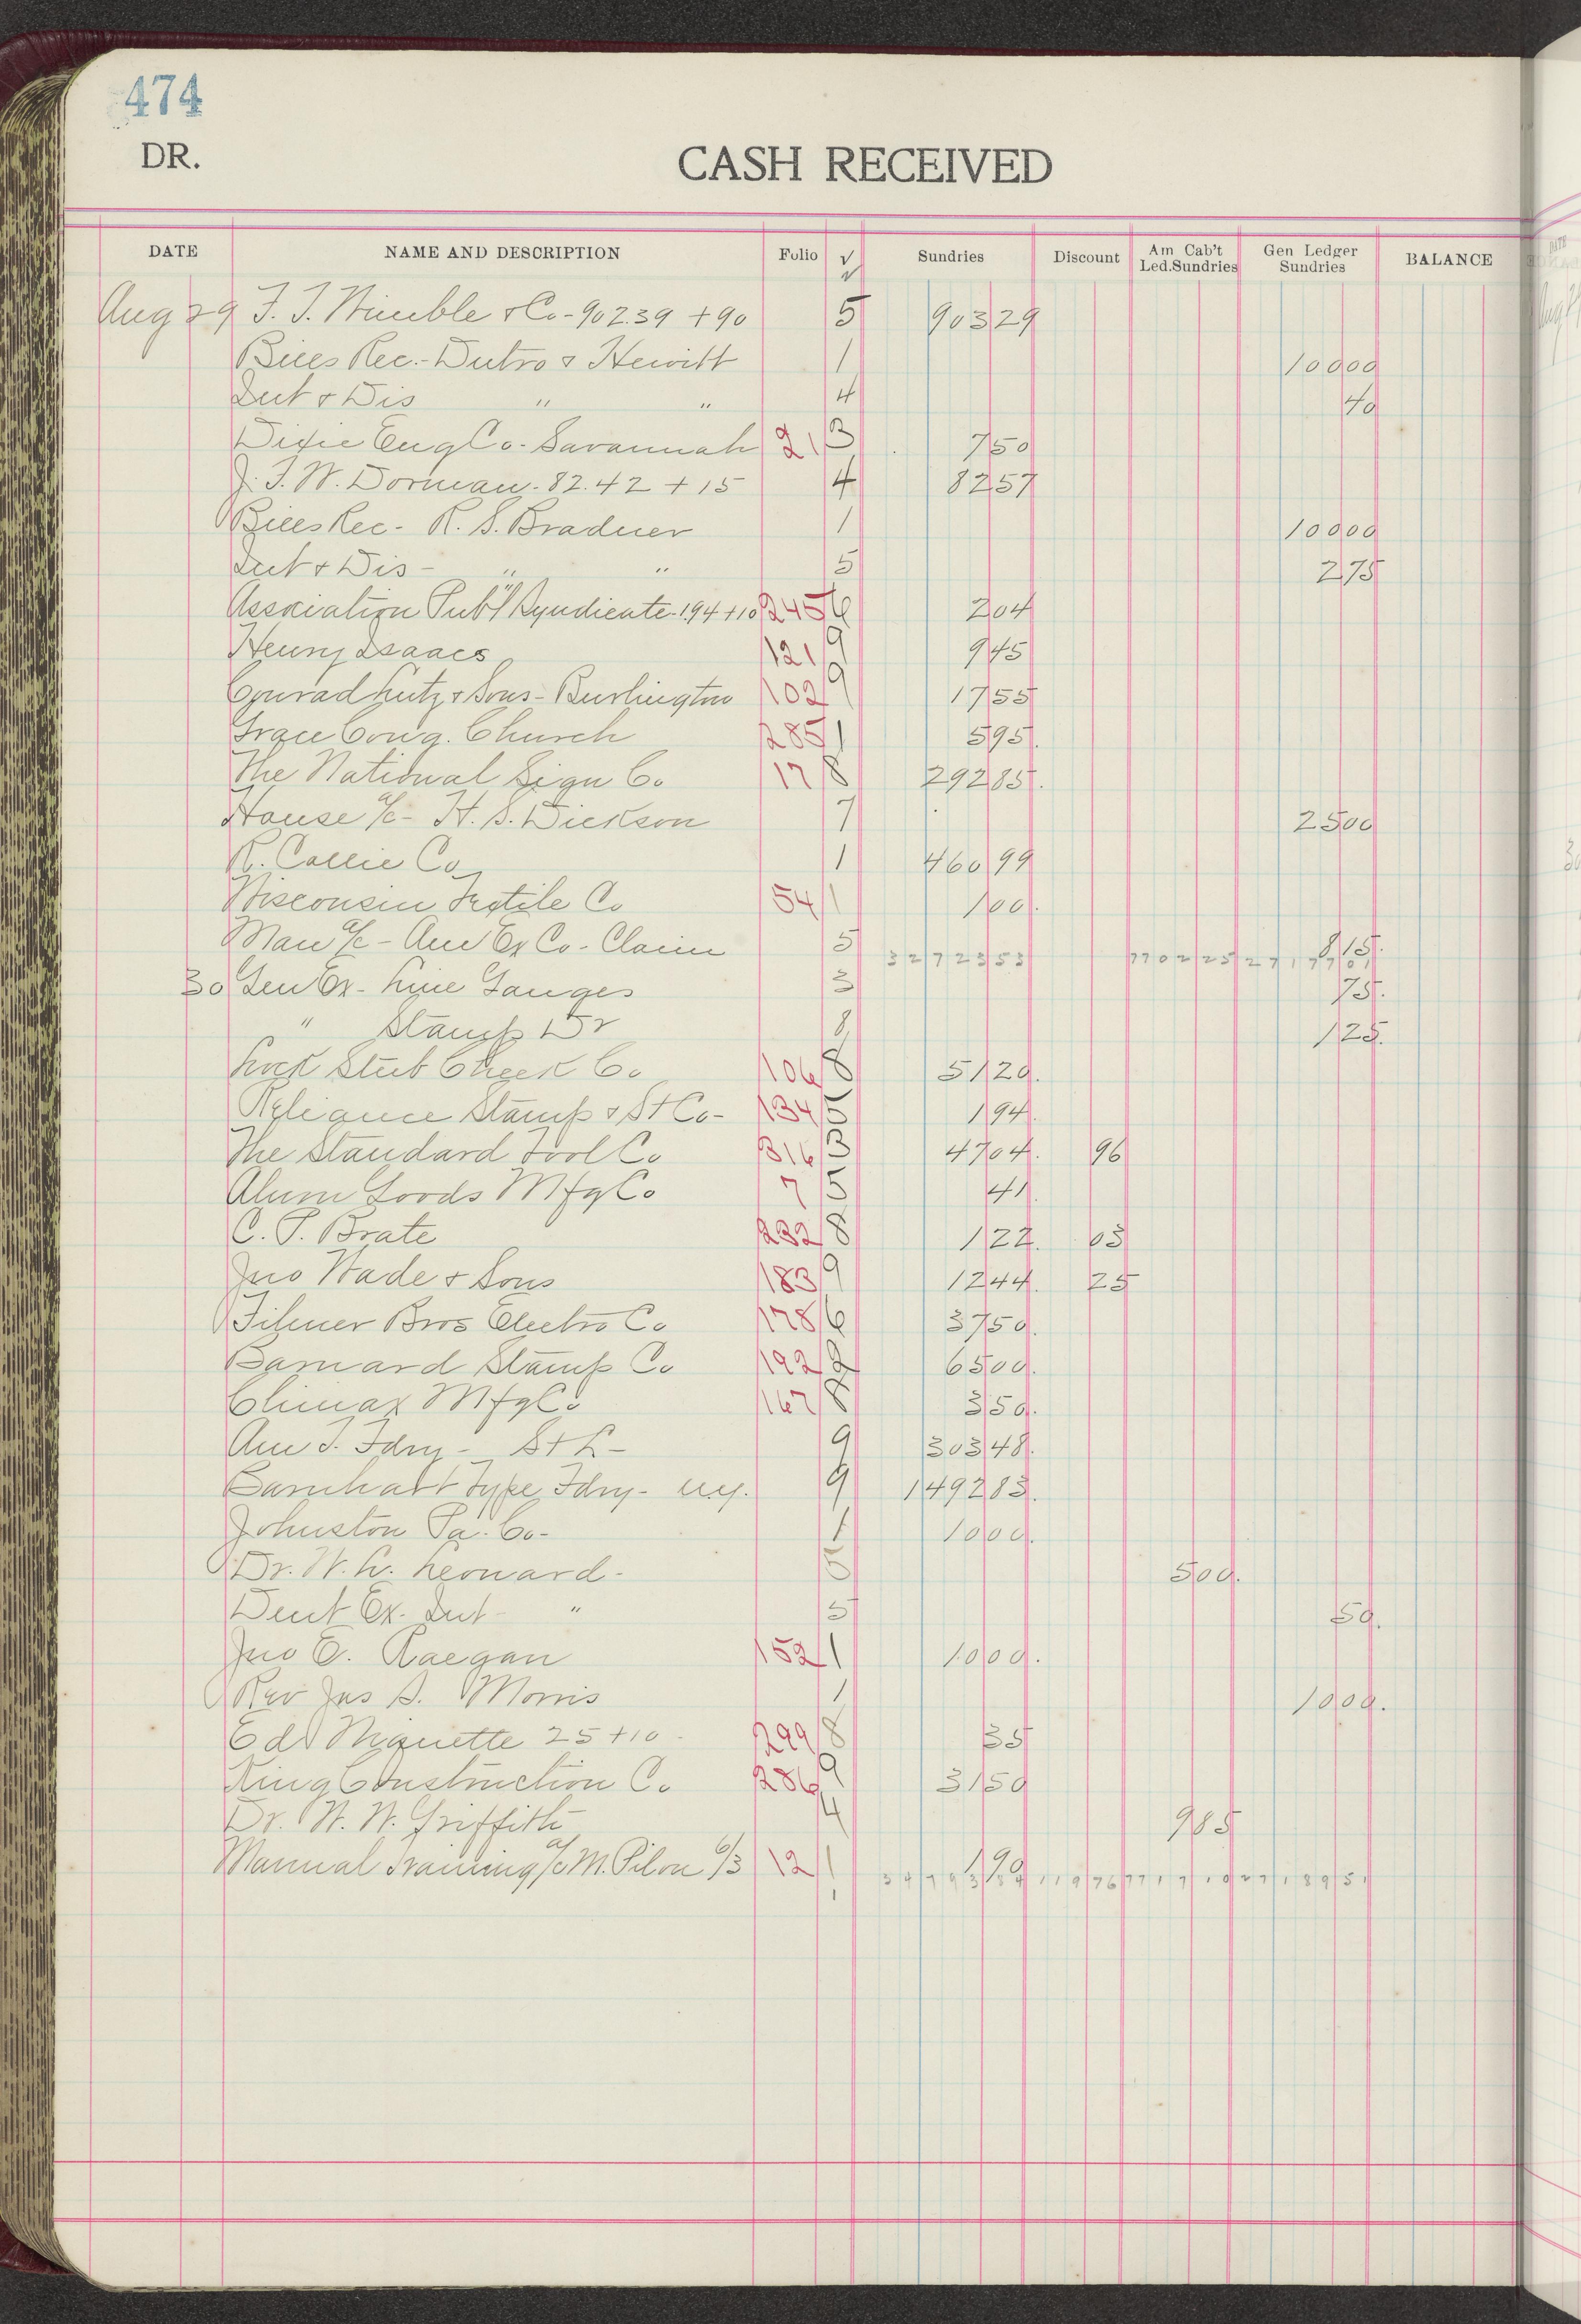 474
DR.
CASH RECEIVED
DATE NAME AND DESCRIPTION Folio √ Sundries Discount Am Cab't Led.Sundries Gen Ledger Sundries BALANCE
Aug 29 F. T. Wimble & Co - 902.39 + 90 5 903 29
Bills Rec. - Dutro & Hewitt 1 100 00
Int & Dis " " 4 40
Dixie Eng Co - Savannah 21 3 7 50
J. F. W. Dorman - 82.42 + 15 4 82 57
Bills Rec - R. S. Bradner 1 100 00
Int & Dis - " " 5 2 75
Association Pub'l Syndicate - 1.94 + 10 245 6 2 04
Henry Isaacs 121 9 9 45
Conrad Lutz & Sons - Burlington 102 9 17 55
Grace Cong. Church 285 1 5 95
The National Sign Co 17 8 292 85
House a/c - H. S. Dickson 7 25 00
R. Collie Co 1 460 99
Wisconsin Textile Co 54 1 1 00
Man a/c - Am Ex Co - Claim 5 8 15
30 Gen Ex - Line Gauges 3 75
" Stamp Dr 8 1 25
Lock Stub Check Co 106 8 51 20
Reliance Stamp & St Co - 134 5 1 94
The Standard Tool Co 316 3 47 04 96
Alum Goods Mfg Co 7 5 41
C. P. Brate 232 8 1 22 03
Jno Wade & Sons 183 9 12 44 25
Filmer Bros Electro Co 178 6 37 50
Barnard Stamp Co 192 2 65 00
Climax Mfg Co 167 8 3 50
Am T. Fdry - St L - 9 303 48
Barnhart Type Fdry - N.Y. 9 1492 83
Johnston Pa. Co - 1 10 00
Dr. W. L. Leonard - 5 5 00
Dent Ex. Int - " 5 50
Jno E. Raegan 152 1 10 00
Rev Jas S. Morris 1 10 00
Ed Niquette 25 + 10 299 8 35
King Construction Co 286 9 31 50
Dr. W. W. Griffith 4 9 85
Manual Training a/c M. Pilon 6/3 12 1 1 90